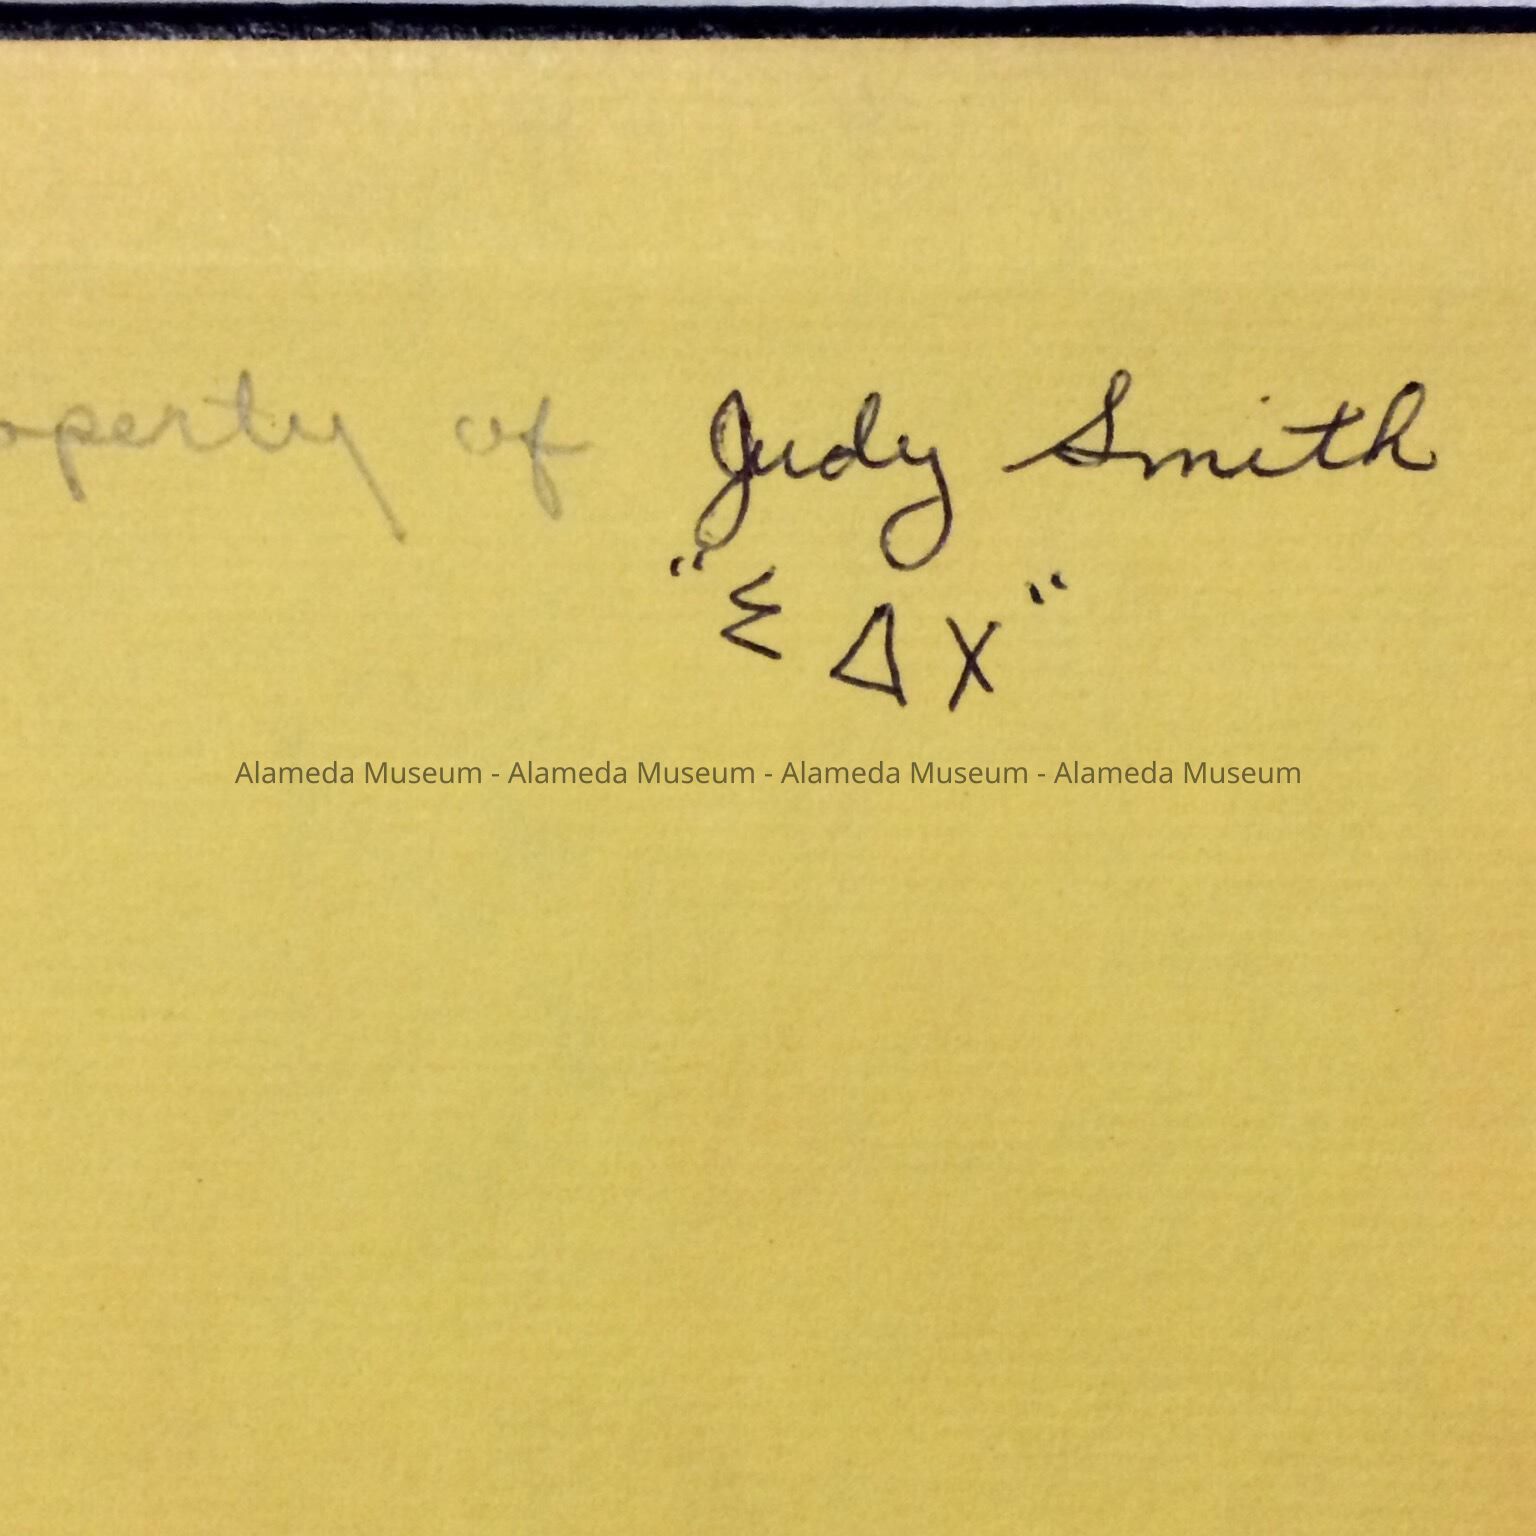 operty of Judy Smith
"Σ Δ X"
Alameda Museum - Alameda Museum - Alameda Museum - Alameda Museum